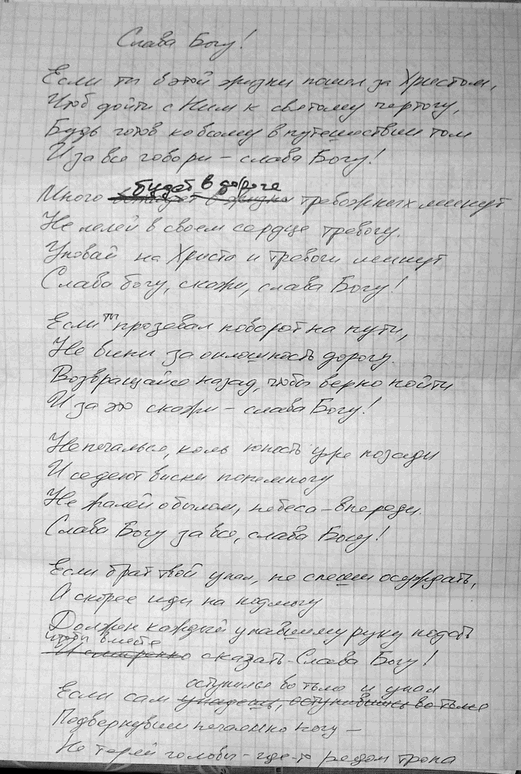 Слава Богу!
Если ты в этой жизни пошел за Христом,
Чтоб дойти с Ним к святому чертогу,
Будь готов ко всему в путешествии том
И за все говори – слава Богу!
будет в дороге
Много тревожных минут
Не лелей в своем сердце тревогу.
Уповай на Христа и тревоги минут
Слава богу, скажи, слава Богу!
Если ты прозевал поворот на пути,
Не вини за оплошность дорогу.
Возвращайся назад, чтобы верно пойти
И за это скажи – слава Богу!
Не печалься, коль юность уже позади
И седеют виски понемногу
Не жалей о былом, небеса – впереди.
Слава Богу за все, слава Богу!
Если брат твой упал, не спеши осуждать,
А скорее иди на подмогу
Должен каждый упавшему руку подать
чтобы вместе
И смиренно сказать – Слава Богу!
оступился во тьме и упал
Если сам оступившись во тьме
Подвернувши нечаянно ногу –
Не теряй головы – где-то рядом тропа